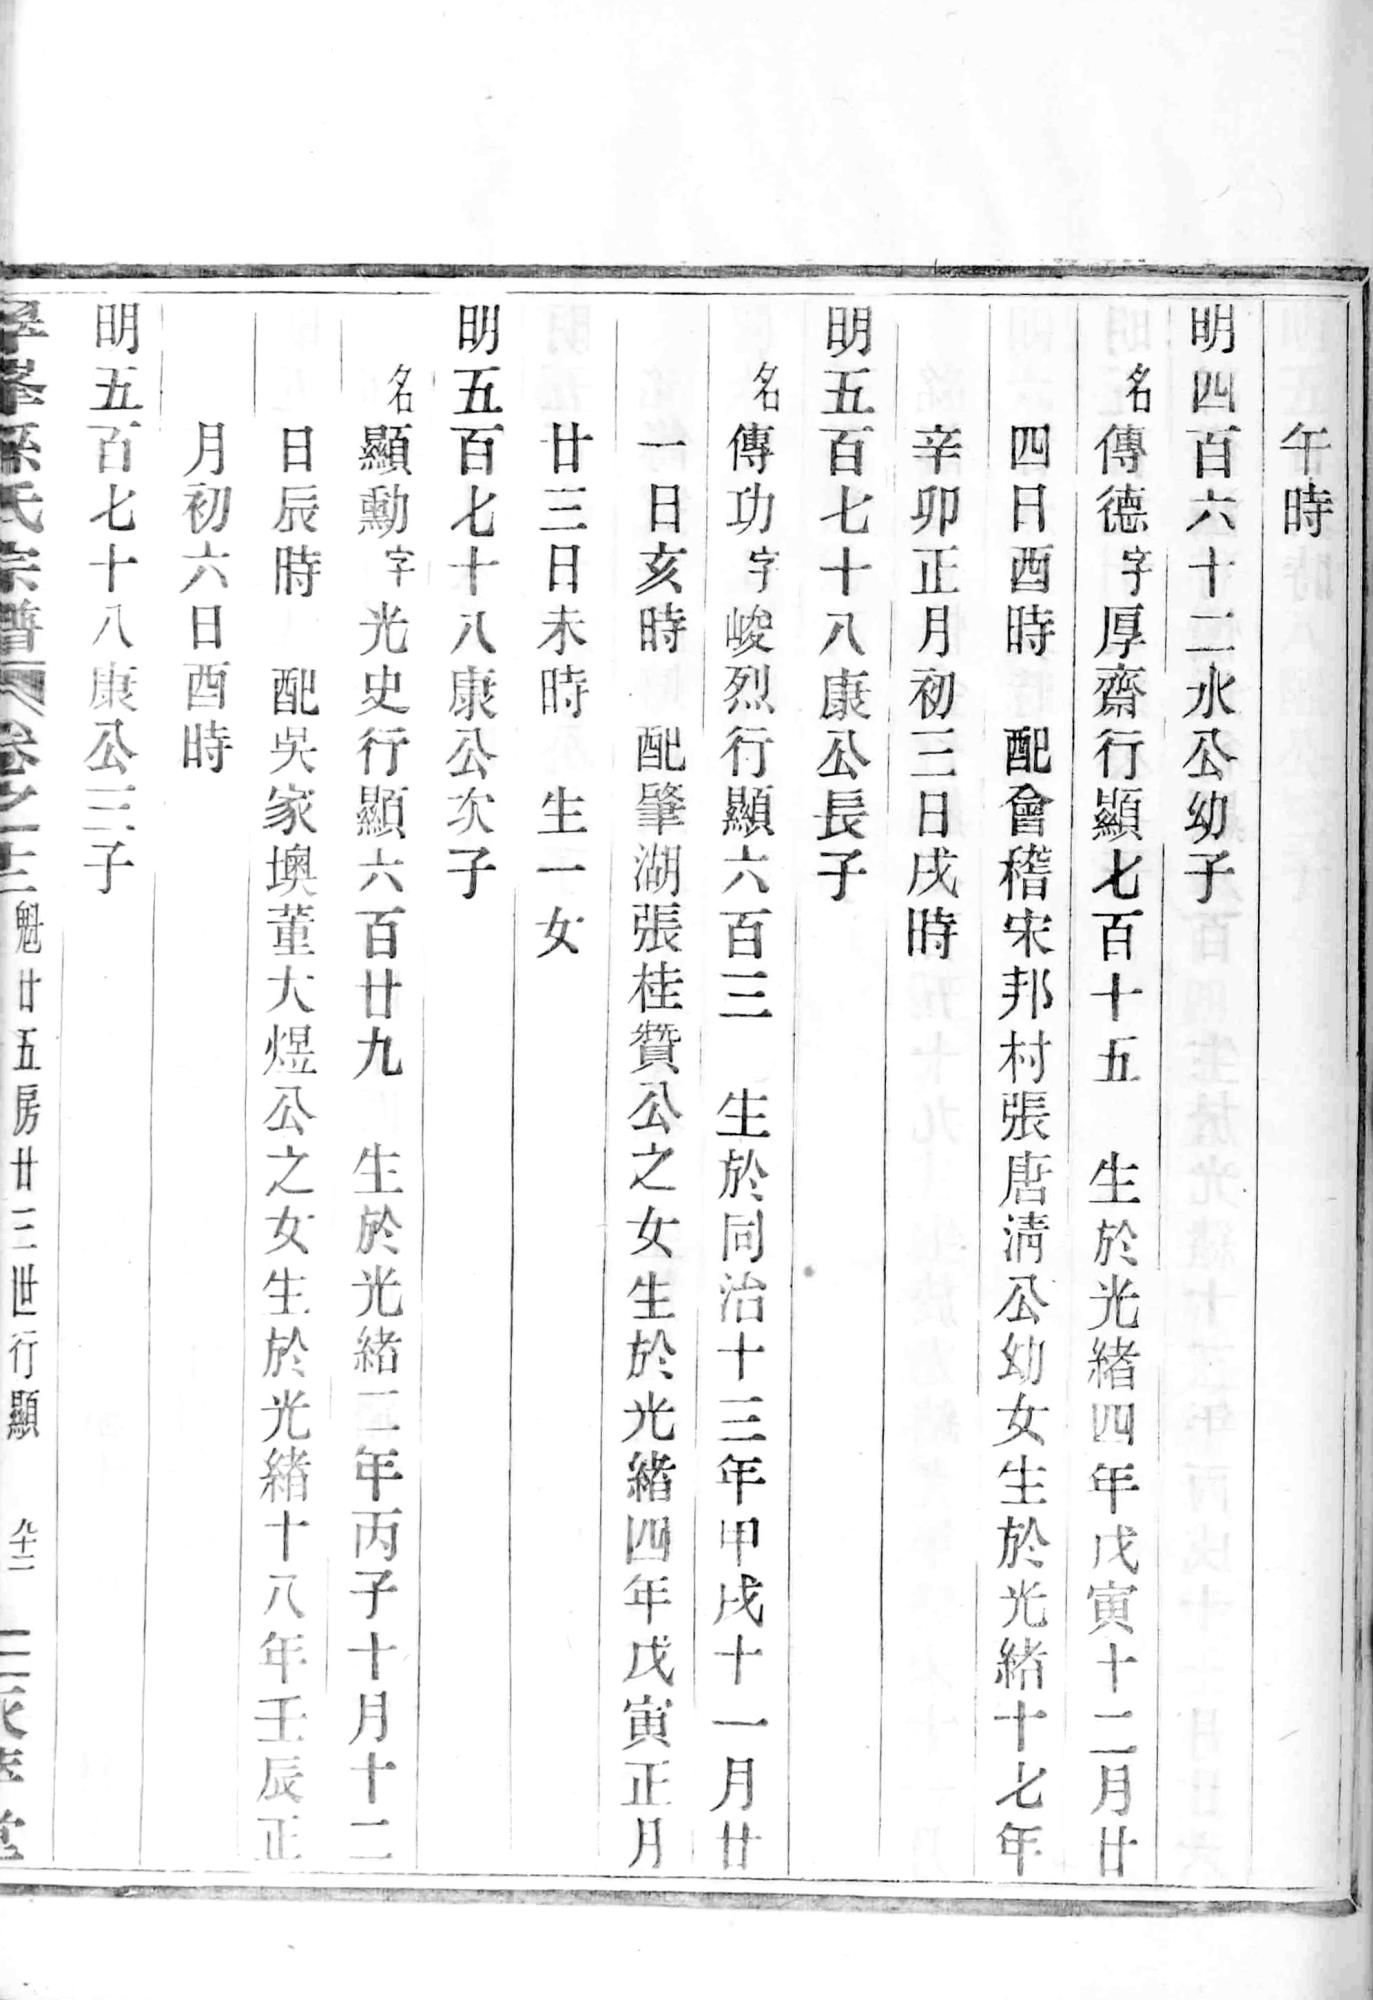 午時
明四百六十二永公幼子
名傳德字厚齋行顯七百十五　生於光緒四年戊寅十二月廿
四日酉時　配會稽宋邦村張唐淸公幼女生於光緒十七年
辛卯正月初三日戌時
明五百七十八康公長子
名傳功字峻烈行顯六百三　生於同治十三年甲戌十一月廿
一日亥時　配肇湖張桂贊公之女生於光緒四年戊寅正月
廿三日未時　生一女
明五百七十八康公次子
名顯勳字光史行顯六百廿九　生於光緒二年丙子十月十二
日辰時　配吳家墺董大煜公之女生於光緒十八年壬辰正
月初六日酉時
明五百七十八康公三子
孫氏宗譜　卷之十三　魁廿五房廿三世行顯　九十二　堂